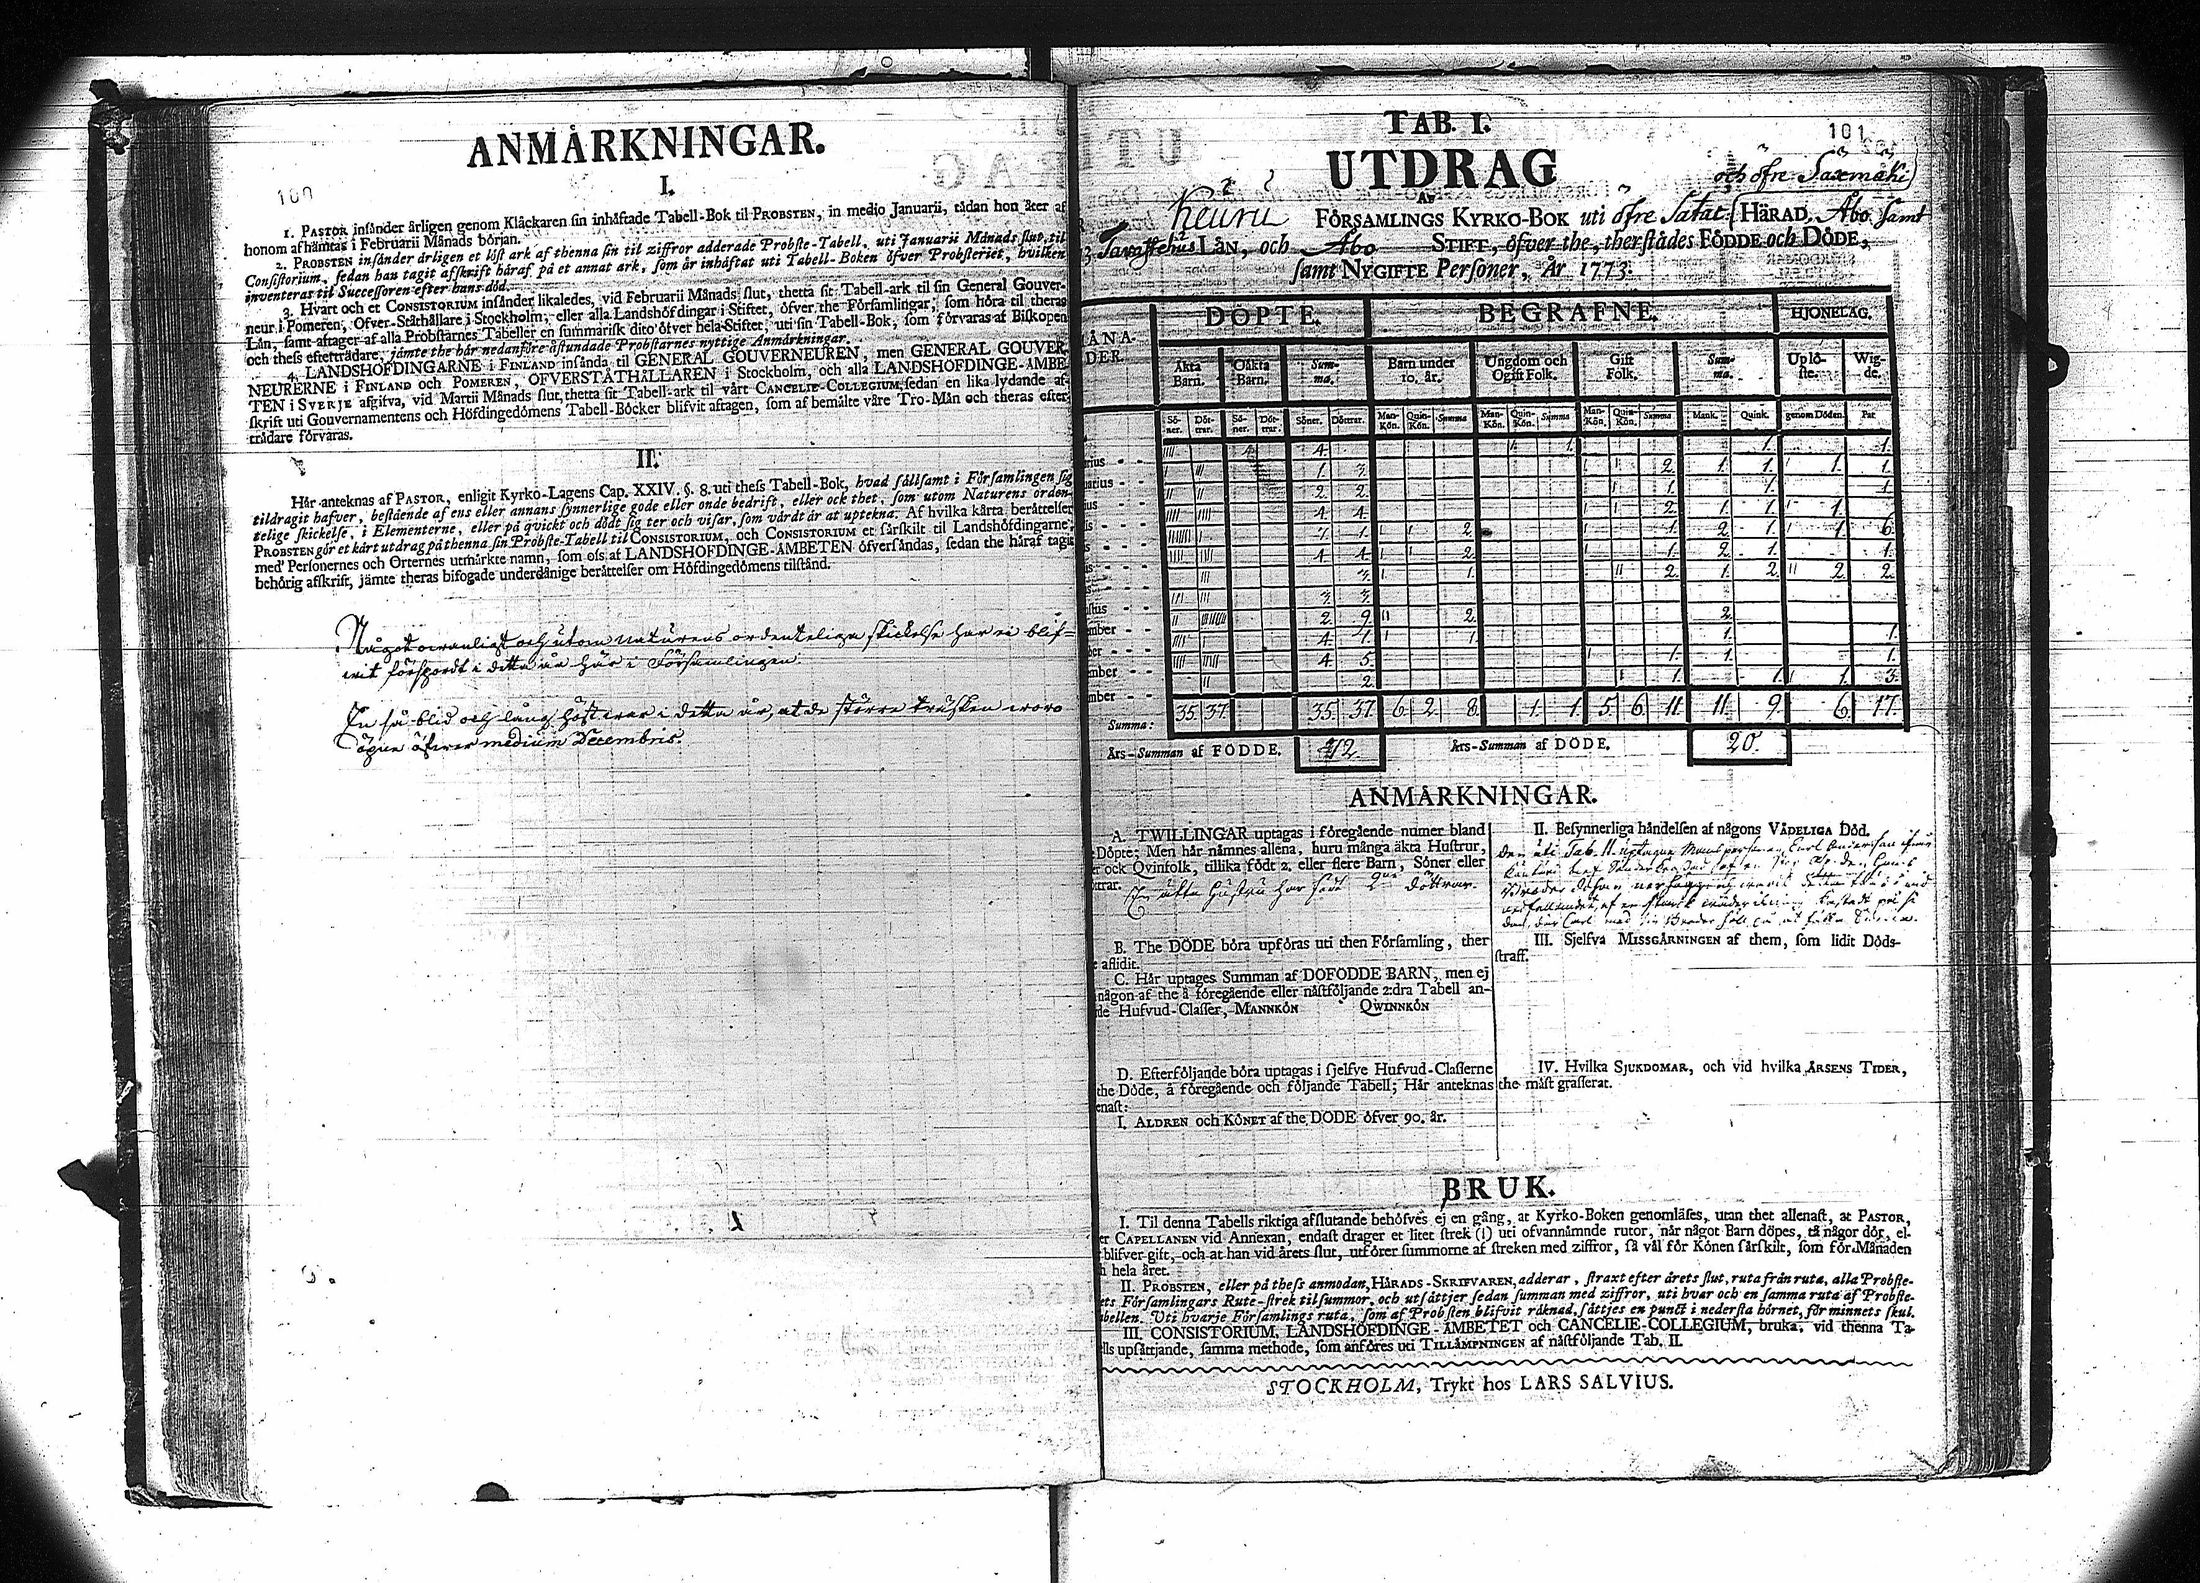 ANMÄRKNINGAR.
100
I.
1. PASTOR insånder årligen genom Klåckaren sin inhåftade Tabell-Bok til PROBSTEN, in medio Januarii, tådan hon åter af
honom afhämtas i Februarii Månads början.
2. PROBSTEN insånder årligen et löst ark af thenna sin til ziffror adderade Probste-Tabell, uti Januarii Månads slut, til
Consistorium, sedan han tagit afskrift håraf på et annat ark, som år inhåftat uti Tabell-Boken öfver Probsteriet, hvilken
inventeras til Successoren efter hans död.
3. Hvart och et CONSISTORIUM insånder likaledes, vid Februarii Månads slut, thetta sit Tabell-ark til sin General Gouver-
neur i Pomeren, Öfver-Ståthållare i Stockholm, eller alla Landshöfdingar i Stiftet, öfver the Församlingar, som höra til theras
Lån, samt aftager af alla Probstarnes Tabeller en summarisk dito öfver hela Stiftet, uti sin Tabell-Bok, som förvaras af Biskopen
och thess eftertrådare, jämte the hår nedanföre åstundade Probstarnes nyttige Anmårkningar.
4. LANDSHÖFDINGARNE i FINLAND insånda til GENERAL GOUVERNEUREN, men GENERAL GOUVER-
NEURERNE i FINLAND och POMEREN, ÖFVERSTÅTHÅLLAREN i Stockholm, och alla LANDSHÖFDINGE-ÅMBE-
TEN i SVERJE afgifva, vid Martii Månads slut, thetta sit Tabell-ark til vårt CANCELIE-COLLEGIUM, sedan en lika lydande af-
skrift uti Gouvernamentens och Höfdingedömens Tabell-Böcker blifvit aftagen, som af bemålte våre Tro-Mån och theras efter-
trådare förvaras.
II.
Hår anteknas af PASTOR, enligit Kyrko-Lagens Cap. XXIV. §. 8. uti thess Tabell-Bok, hvad sållsamt i Församlingen sig
tildragit hafver, bestående af ens eller annans synnerlige gode eller onde bedrift, eller ock thet, som utom Naturens orden-
telige skickelse, i Elementerne, eller på qvickt och dödt sig ter och visar, som vårdt år at uptekna. Af hvilka kårta beråttelser
PROBSTEN gör et kårt utdrag på thenna sin Probste-Tabell til CONSISTORIUM, och CONSISTORIUM et sårskilt til Landshöfdingarne,
med Personernes och Orternes utmårkte namn, som oss af LANDSHÖFDINGE-ÅMBETEN öfversåndas, sedan the håraf tagit
behörig afskrift, jämte theras bifogade underdånige beråttelser om Höfdingedömens tilstånd.
Något ovanligt och utom naturens ordenteliga skickelse har ei blif-
vit försport i detta år här i Församlingen.
En så blid och lång höst war i detta år, at de större träsken woro
öpne öfwer medium Decembris.
101
TAB. I.
UTDRAG
och öfre Säxmäki
AF
Keuru FÖRSAMLINGS KYRKO-BOK uti öfre Satac. HÄRAD, Åbo samt
Tawastehus LÅN, och Åbo STIFT, öfver the, therstådes FÖDDE och DÖDE,
samt NYGIFTE Personer, År 1773.
MÅNA-DER. DÖPTE. BEGRAFNE. HJONELAG.
Åkta Barn. Oåkta Barn. Summa. Barn under 10. år. Ungdom och Ogift Folk. Gift Folk. Summa. Uplöste. Wigde.
Söner. Döttrar. Söner. Döttrar. Söner. Döttrar. Man-Kön. Quin-Kön. Summa Man-Kön. Quin-Kön. Summa Man-Kön. Quin-Kön. Summa Mank. Quink. genom Döden. Par
arius 4. 1. 1. 1.
uarius 1. 3. 2. 1. 1. 1. 1.
2. 2. 1. 1. 1.
4. 4. 2. 1. 1. 1.
7. 1. 2. 1. 2. 1. 1. 6.
4. 4. 2. 1. 2. 1. 1.
3. 1. 2. 1. 2. 2. 2.
3. 3.
2. 9. 2. 2.
4. 1. 1. 1. 1.
4. 5. 1. 1. 1.
2. 1. 1. 1. 3.
Summa: 35. 37. 35. 37. 6. 2. 8. 1. 1. 5. 6. 11. 11. 9. 6. 17.
Års-Summan af FÖDDE. 72. Års-Summan af DÖDE. 20.
ANMÄRKNINGAR.
A. TWILLINGAR uptagas i föregående numer bland
Döpte; Men hår nåmnes allena, huru många åkta Hustrur,
er ock Qvinfolk, tillika födt 2. eller flere Barn, Söner eller
öttrar.
En äkta hustru har födt 2ne döttrar.
B. The DÖDE böra upföras uti then Församling, ther
e aflidit.
C. Hår uptages Summan af DÖFÖDDE BARN, men ej
någon af the å föregående eller nåstföljande 2:dra Tabell an-
de Hufvud-Classer, MANNKÖN QWINNKÖN
D. Efterföljande böra uptagas i sjelfve Hufvud-Classerne
the Döde, å föregående och följande Tabell; Hår anteknas
enast:
I. ÅLDREN och KÖNET af the DÖDE öfver 90. år.
II. Besynnerliga håndelsen af någons VÅDELIGA Död.
III. Sjelfva MISSGÅRNINGEN af them, som lidit Döds-
straff.
IV. Hvilka SJUKDOMAR, och vid hvilka ÅRSENS TIDER,
the måst grasserat.
BRUK.
I. Til denna Tabells riktiga afslutande behöfves ej en gång, at Kyrko-Boken genomläses, utan thet allenast, at PASTOR,
er CAPELLANEN vid Annexan, endast drager et litet strek (|) uti ofvannåmnde rutor, når något Barn döpes, tå någor dör, el-
blifver gift, och at han vid årets slut, utförer summorne af streken med ziffror, så vål för Könen sårskilt, som för Månaden
h hela året.
II. PROBSTEN, eller på thess anmodan, HÄRADS-SKRIFVAREN, adderar, straxt efter årets slut, ruta från ruta, alla Probste-
ets Församlingars Rute-strek til summor, och utsåttjer sedan summan med ziffror, uti hvar och en samma ruta af Probste-
abellen. Uti hvarje Församlings ruta, som af Probsten blifvit råknad, såttjes en punct i nedersta hörnet, för minnets skul.
III. CONSISTORIUM, LANDSHÖFDINGE-ÅMBETET och CANCELIE-COLLEGIUM, bruka, vid thenna Ta-
lls upsåttjande, samma methode, som anföres uti TILLÅMPNINGEN af nåstföljande Tab. II.
STOCKHOLM, Trykt hos LARS SALVIUS.